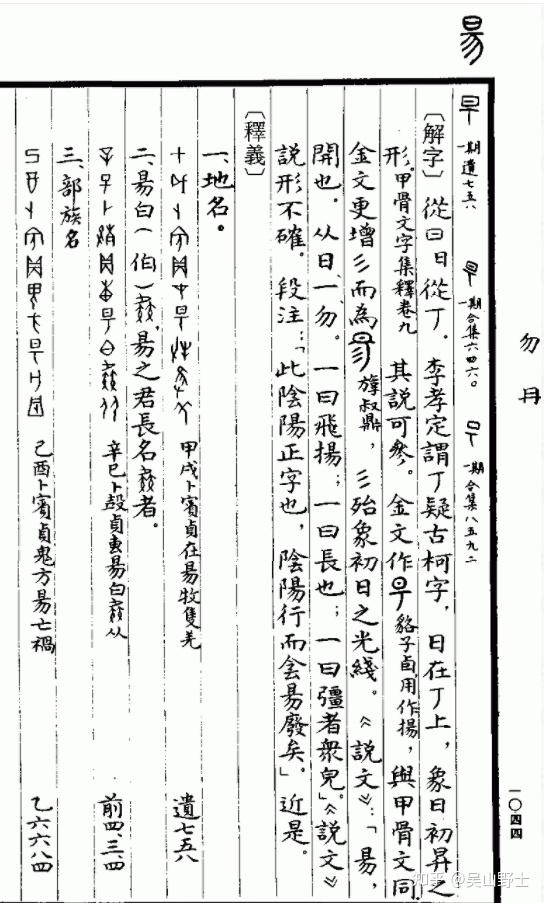 勿 冄
一〇四四
一期 遺七五八 一期 合集六四六〇 一期 合集八五九二
〔解字〕從日從丁。李孝定謂丁疑古柯字，日在丁上，象日初昇之
形。甲骨文字集釋卷九 其說可參。金文作 貉子卣，用作揚，與甲骨文同，
金文更增彡而為 叔鼎，彡殆象初日之光綫。《說文》：「昜，
開也。从日、一、勿。一曰飛揚；一曰長也；一曰彊者眾皃。」《說文》
說形不確。段注：「此陰陽正字也，陰陽行而侌昜廢矣。」近是。
〔釋義〕
一、地名。
甲戌卜賓貞在昜牧隻羌 遺七五八
二、昜白（伯），昜之君長名者。
辛巳卜㱿貞昜白从 前四.三.四
三、部族名
己酉卜賓貞鬼方昜亡禍 乙六六八四
知乎 @吴山野士